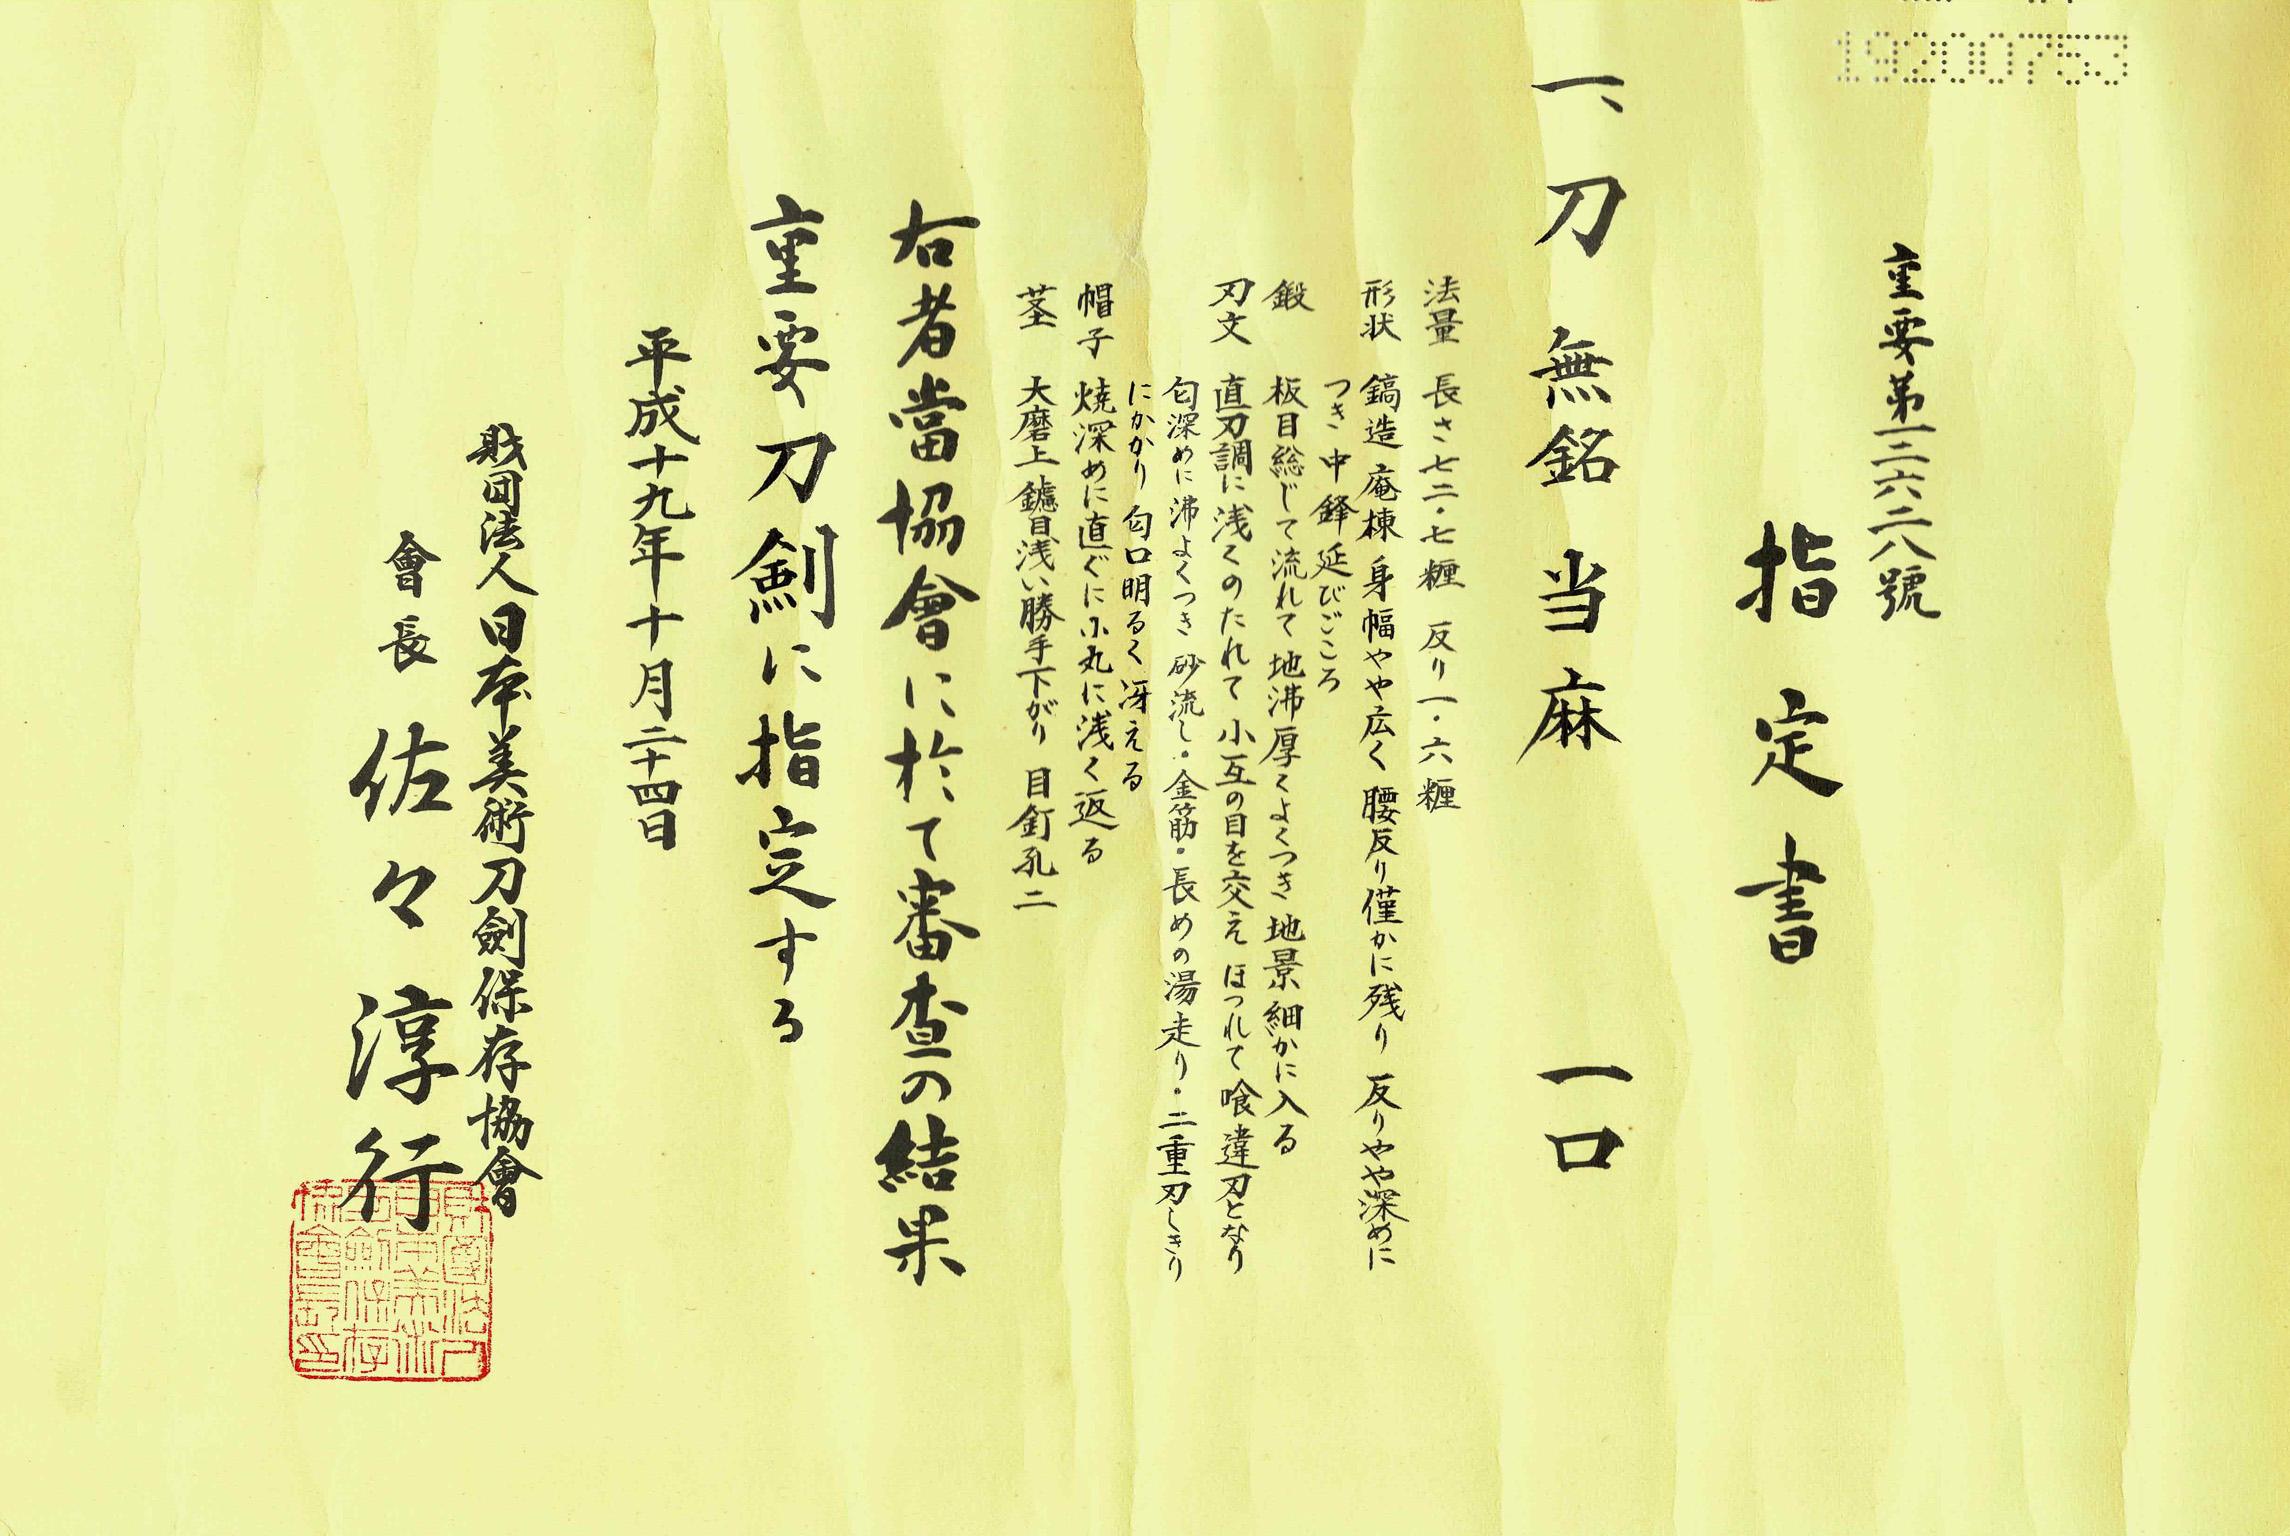 19200753
重要第一二六二八號
指定書
一、刀 無銘 当麻 一口
法量 長さ七二・七糎 反り一・六糎
形状 鎬造 庵棟 身幅やや広く 腰反り僅かに残り 反りやや深めに
つき 中鋒延びごころ
鍛 板目総じて流れて 地沸厚くよくつき 地景細かに入る
刃文 直刃調に浅くのたれて 小互の目を交え ほつれて 喰違刃となり
匂深めに 沸よくつき 砂流し・金筋・長めの湯走り・二重刃しきり
にかかり 匂口明るく冴える
帽子 焼深めに直ぐに小丸に浅く返る
茎 大磨上 鑢目浅い勝手下がり 目釘孔二
右者當協會に於て審査の結果
重要刀劍に指定する
平成十九年十月二十四日
財団法人日本美術刀劍保存協會
會長 佐々淳行
財團法人
日本美術
刀劍保存
協會長印